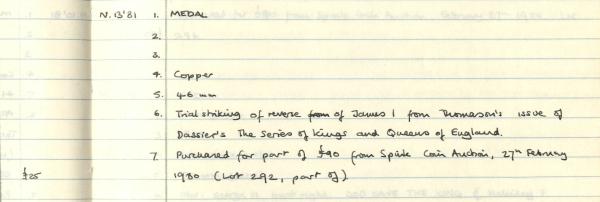 N.13'81 1. MEDAL
2.
3.
4. Copper
5. 46 mm
6. Trial striking of reverse from of James I from Thomason's issue of
Dassier's The Series of Kings and Queens of England.
7. Purchased for part of £90 from Spink Coin Auction, 27th February
£25 1980 (Lot 292, part of)